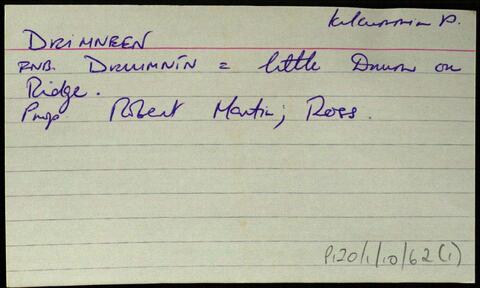 Kilcummin P.
DRIMNEEN
RNB. DRUIMNÍN = little Drum or
Ridge.
Prop Robert Martin; Ross.
P120/1/10/62(1)